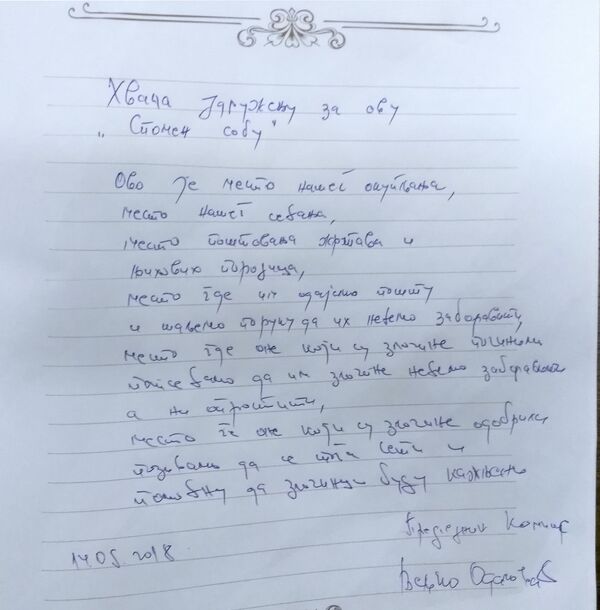 Хвала Удружењу за ову
„ Спомен собу"
Ово је место нашег окупљања,
место нашег сећања,
место поштовања жртава и
њихових породица,
место где им одајемо пошту
и шаљемо поруку да их нећемо заборавити,
место где оне који су злочине починили
да им злочине нећемо заборавити
а ни опростити,
место где оне који су злочине одобрили
позивамо да се сети и
да злочинци буду кажњени
14.05 2018
Председник Комисије
Вељко Одаловић